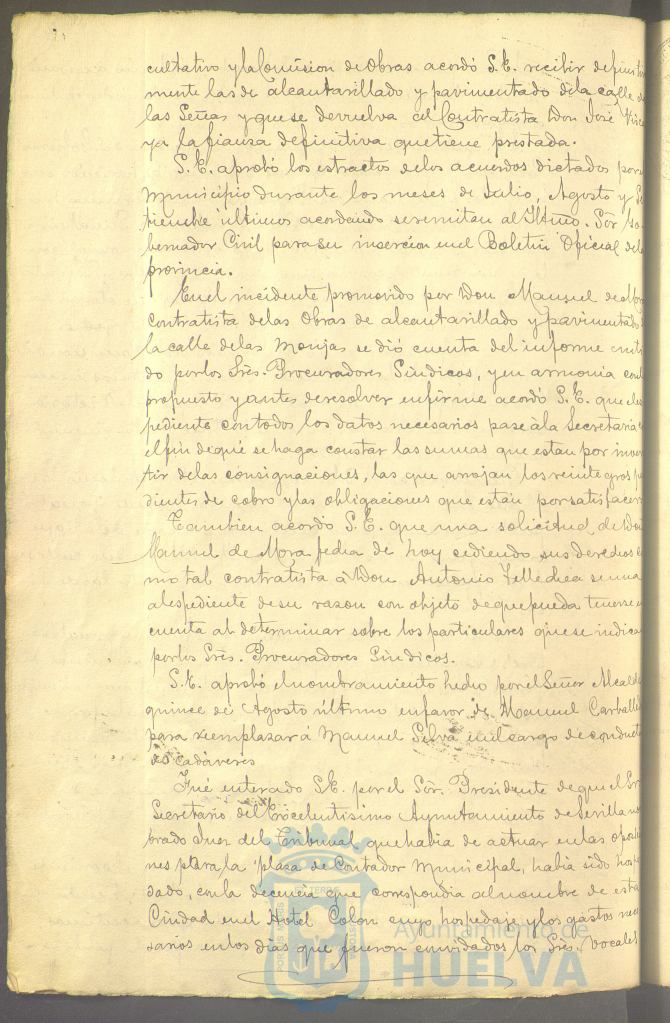 cultativo y la Comision de Obras acordó S.E. recibir definiti
mente las de alcantarillado y pavimentado de la calle de
las Señas y que se devuelva al Contratista Don José
ya la fianza definitiva que tiene prestada.
S.E. aprobó los estractos de los acuerdos dictados por
Municipio durante los meses de Julio, Agosto y Se
tiembre últimos acordando se remitan al Iltmo. Sôr Go
bernador Civil para su insercion en el Boletin Oficial de la
provincia.
En el incidente promovido por Don Manuel de Mora
contratista de las Obras de alcantarillado y pavimentado
la calle de las Monjas se dió cuenta del informe emiti
do por los Sres. Procuradores Sindicos, y en armonia con
propuesto y antes de resolver en firme acordó S.E. que el es
pediente con todos los datos necesarios pase á la Secretaria
el fin de que se haga constar las sumas que estan por inver
tir de las consignaciones, las que arrojan los reintegros
dientes de cobro y las obligaciones que estan por satisfacer
Tambien acordó S.E. que una solicitud de Don
Manuel de Mora fecha de hoy cediendo sus derechos
mo tal contratista á Don Antonio se una
al espediente de su razon con objeto de que pueda tenerse en
cuenta al determinar sobre los particulares que se indica
por los Sres. Procuradores Sindicos.
S.E. aprobó el nombramiento hecho por el Señor Alcalde
quince de Agosto último en favor de Manuel Carballo
para reemplazar á Manuel Silva en el cargo de conduct
de cadáveres
Fué enterado S.E. por el Sôr. Presidente de que el Sr
Secretario del Excelentisimo Ayuntamiento de Sevilla
brado Juez del Tribunal que habia de actuar en las oposi
nes para la plaza de Contador Municipal, habia sido hospe
dado, con la decencia que correspondia al nombre de esta
Ciudad en el Hotel Colon cuyo hospedaje y los gastos nece
sarios en los dias que fueron convidados los Sres. Vocales
Ayuntamiento de
HUELVA